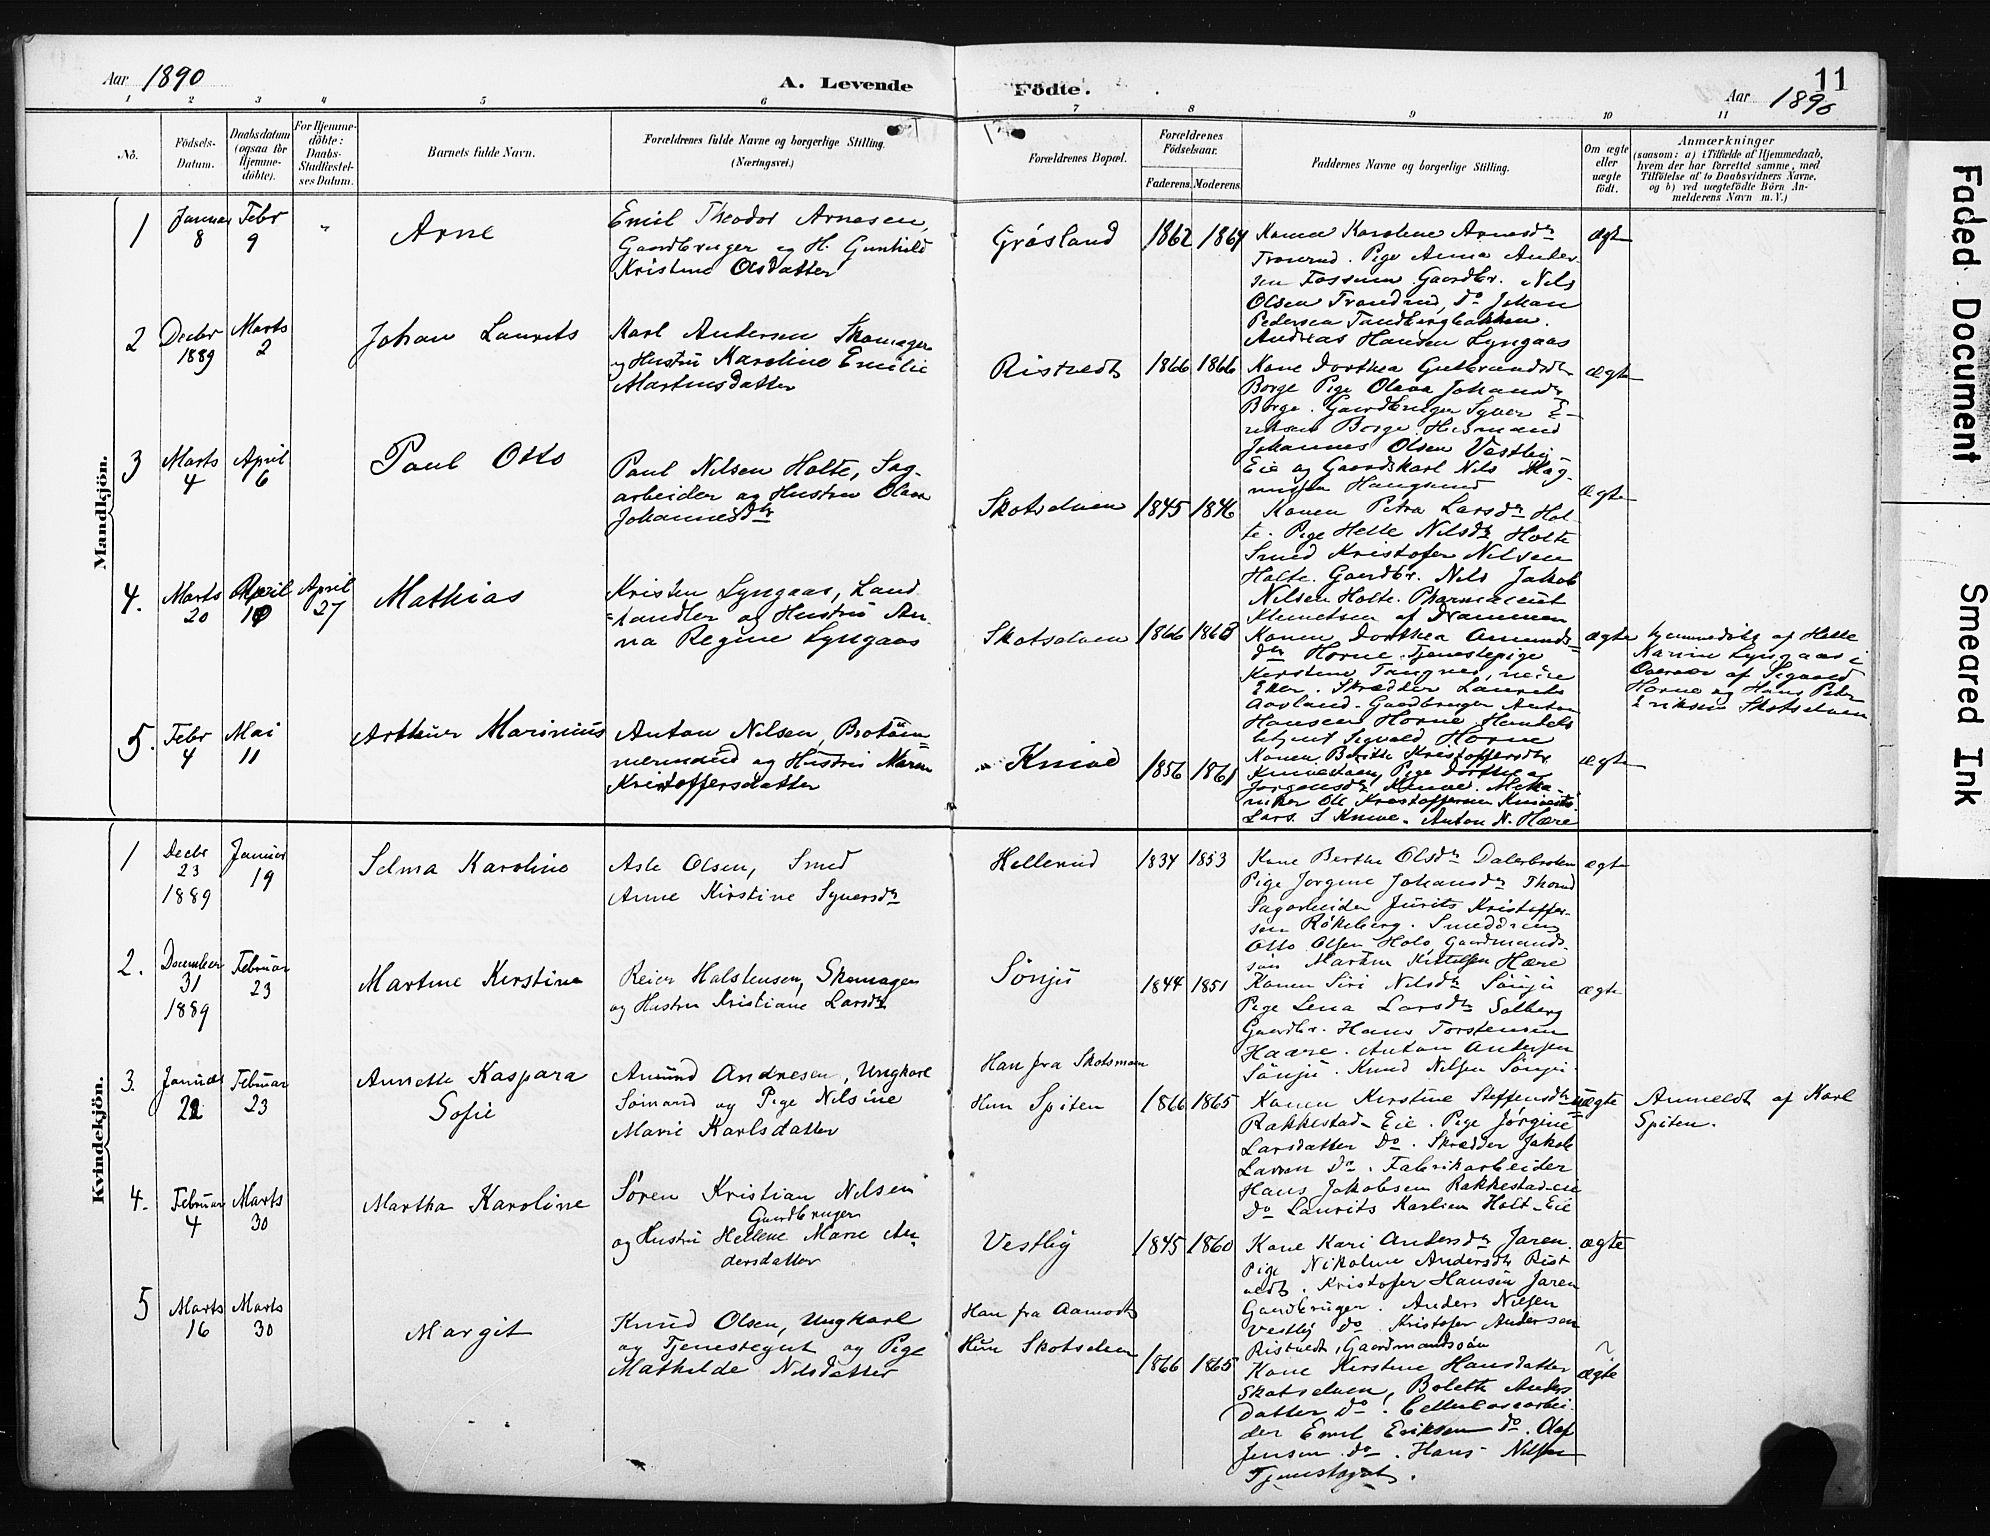 Aar 1890
A. Levende
Födte.
11
Aar 1890
1 2 3 4 5 6 7 8 9 10 11
No.
Födsels-
Datum.
Daabsdatum
(ogsaa for
Hjemme-
döbte).
For Hjemme-
döbte:
Daabs-
Stadfæstel-
ses Datum.
Barnets fulde Navn.
Forældrenes fulde Navne og borgerlige Stilling.
(Næringsvei.)
Forældrenes Bopæl.
Forældrenes
Födselsaar.
Faderens. Moderens.
Faddernes Navne og borgerlige Stilling.
Om ægte
eller
uægte
födt.
Anmærkninger
(saasom: a) i Tilfælde af Hjemmedaab,
hvem der har forrettet samme, med
Tilföielse af to Daabsvidners Navne,
og b) ved uægtefödte Börn An-
melderens Navn m.V.)
Mandkjön.
1
Januar
8
Febr
9
"
Arne
Emil Theodor Arnesen,
Gaardbruger og H. Gunhild
Kristine Olsdatter
Gråsland
1862 1864
Konen Karoline Arnesdr
Tranrud. Pige Anna Ander-
sen Fossum Gaardbr. Nils
Olsen Trandrud, Do Johan
Pedersen Tandbergbakken.
Andreas Hansen Lyngaas
ægte
2
Decbr
1889
Marts
2
Johan Laurits
Karl Andersen Skomager
og Hustru Karoline Emilie
Martinsdatter
Ristvedt
1866 1866
Kone Dorthea Gulbrandsdr
Borge Pige Olava Johansdr
Borge. Gaardbruger Syver E-
riksen Borge. Husmand
Johannes Olsen Vestby
Eie og Gaardskarl Nils Mag-
nussen Haugsund
ægte
3
Marts
4
April
6
Paul Otto
Paul Nilsen Holte, Sag-
arbeider og Hustru Olava
Johannesdr
Skotselven
1845 1846
Konen Petra Larsdr Hol-
te. Pige Helle Nilsdr Holte
Smed Kristofer Nilsen
Holte. Gaardbr. Nils Jakob
Nilsen Holte. Pharmaceut
Klemetsen af Drammen
ægte
4.
Marts
20
April
10
April
27
Mathias
Kristen Lyngaas, Land
=handler og Hustru An-
na Regine Lyngaas
Skotselven
1866 1863
Konen Dorthea Amunds=
dr Horne. Tjenestepige
Kirstine Tangnes, nedre
Eker. Skrædder Laurits
Aasland. Gaardbruger Anton
Hansen Horne Handels
betjent Sigvald Horne
ægte
Hjemmedöbt af Helle
Karine Lyngaas i
Overvær af Sigvald
Horne og Hans Peter
Eriksen Skotselven
5.
Febr
4
Mai
11
Arthur Marinius
Anton Nilsen, Brotöm=
mermand og Hustru Maren
Kristoffersdatter
Knive
1856 1861
Konen Berthe Kristoffersdr
Knivestuen, Pige Dorthea
Jorgensdr Knive. Meka-
niker Ole Kristoffersen Knivesto.
Lars S Knive. Anton N. Hære
ægte
Kvindekjön.
1
Decbr
23
1889
Januar
19
Selma Karoline
Asle Olsen, Smed
Anne Kirstine Syversdr
Hellerud
1834 1853
Kone Berthe Olsdr Dalerbroken
Pige Jorgine Johansdr Thorud
Sagarbeider Jurits Kristoffer-
sen Rökeberg. Smeddreng
Otto Olsen Holo, Gaardmands-
sön Martin Kittelsen Hære
ægte
2.
December
31
1889
Februar
23
Martine Kirstine
Reier Halstensen, Skomager
og Hustru Kristiane Larsdr
Sönju
1844 1851
Konen Siri Nilsdr Sönju
Pige Lena Larsdr Solberg
Gaardbr. Hans Torstensen
Haare. Anton Andersen
Sönju. Knud Nilsen Sönju.
ægte
3.
Januar
22
Februar
23
Annette Kaspara
Sofie
Amund Andresen, Ungkarl
Sömand og Pige Nilsine
Marie Karlsdatter
Han fra Skotsmoen
Hun Spiten
1866 1865
Konen Kirstine Steffensdr
Rakkestad-Eie. Pige Jørgine
Larsdatter Do. Skrædder Jakob
Larsen Do. Fabrikarbeider
Hans Jakobsen Rakkestad-eie
Do Laurits Karlsen Holt-Eie
uægte
Anmeldt af Karl
Spiten.
4.
Februar
4
Marts
30
Martha Karoline
Sören Kristian Nilsen
Gaardbruger
og Hustru Hellene Marie An-
dersdatter
Vestby
1845 1860
Kone Kari Andersdr Jaren.
Pige Nikoline Andersdr Rist
vedt. Kristofer Hansen Jaren
Gaardbruger. Anders Nilsen
Vestby Do. Kristofer Andersen
Ristvedt, Gaardmandssön
ægte
5
Marts
16
Marts
30
Margit
Knud Olsen, Ungkarl
og Tjenestegut og Pige
Mathilde Nilsdatter
Han fra Aamodt
Hun Skotselven
1866 1865
Kone Kirstine Hansdatter
Skotselven, Bolette Anders
datter Do. Cellulosearbei-
der Emil Eriksen Do. Olaf
Jensen do. Hans Nilsen
Tjenestegut.
uægte
Faded Document
Smeared Ink